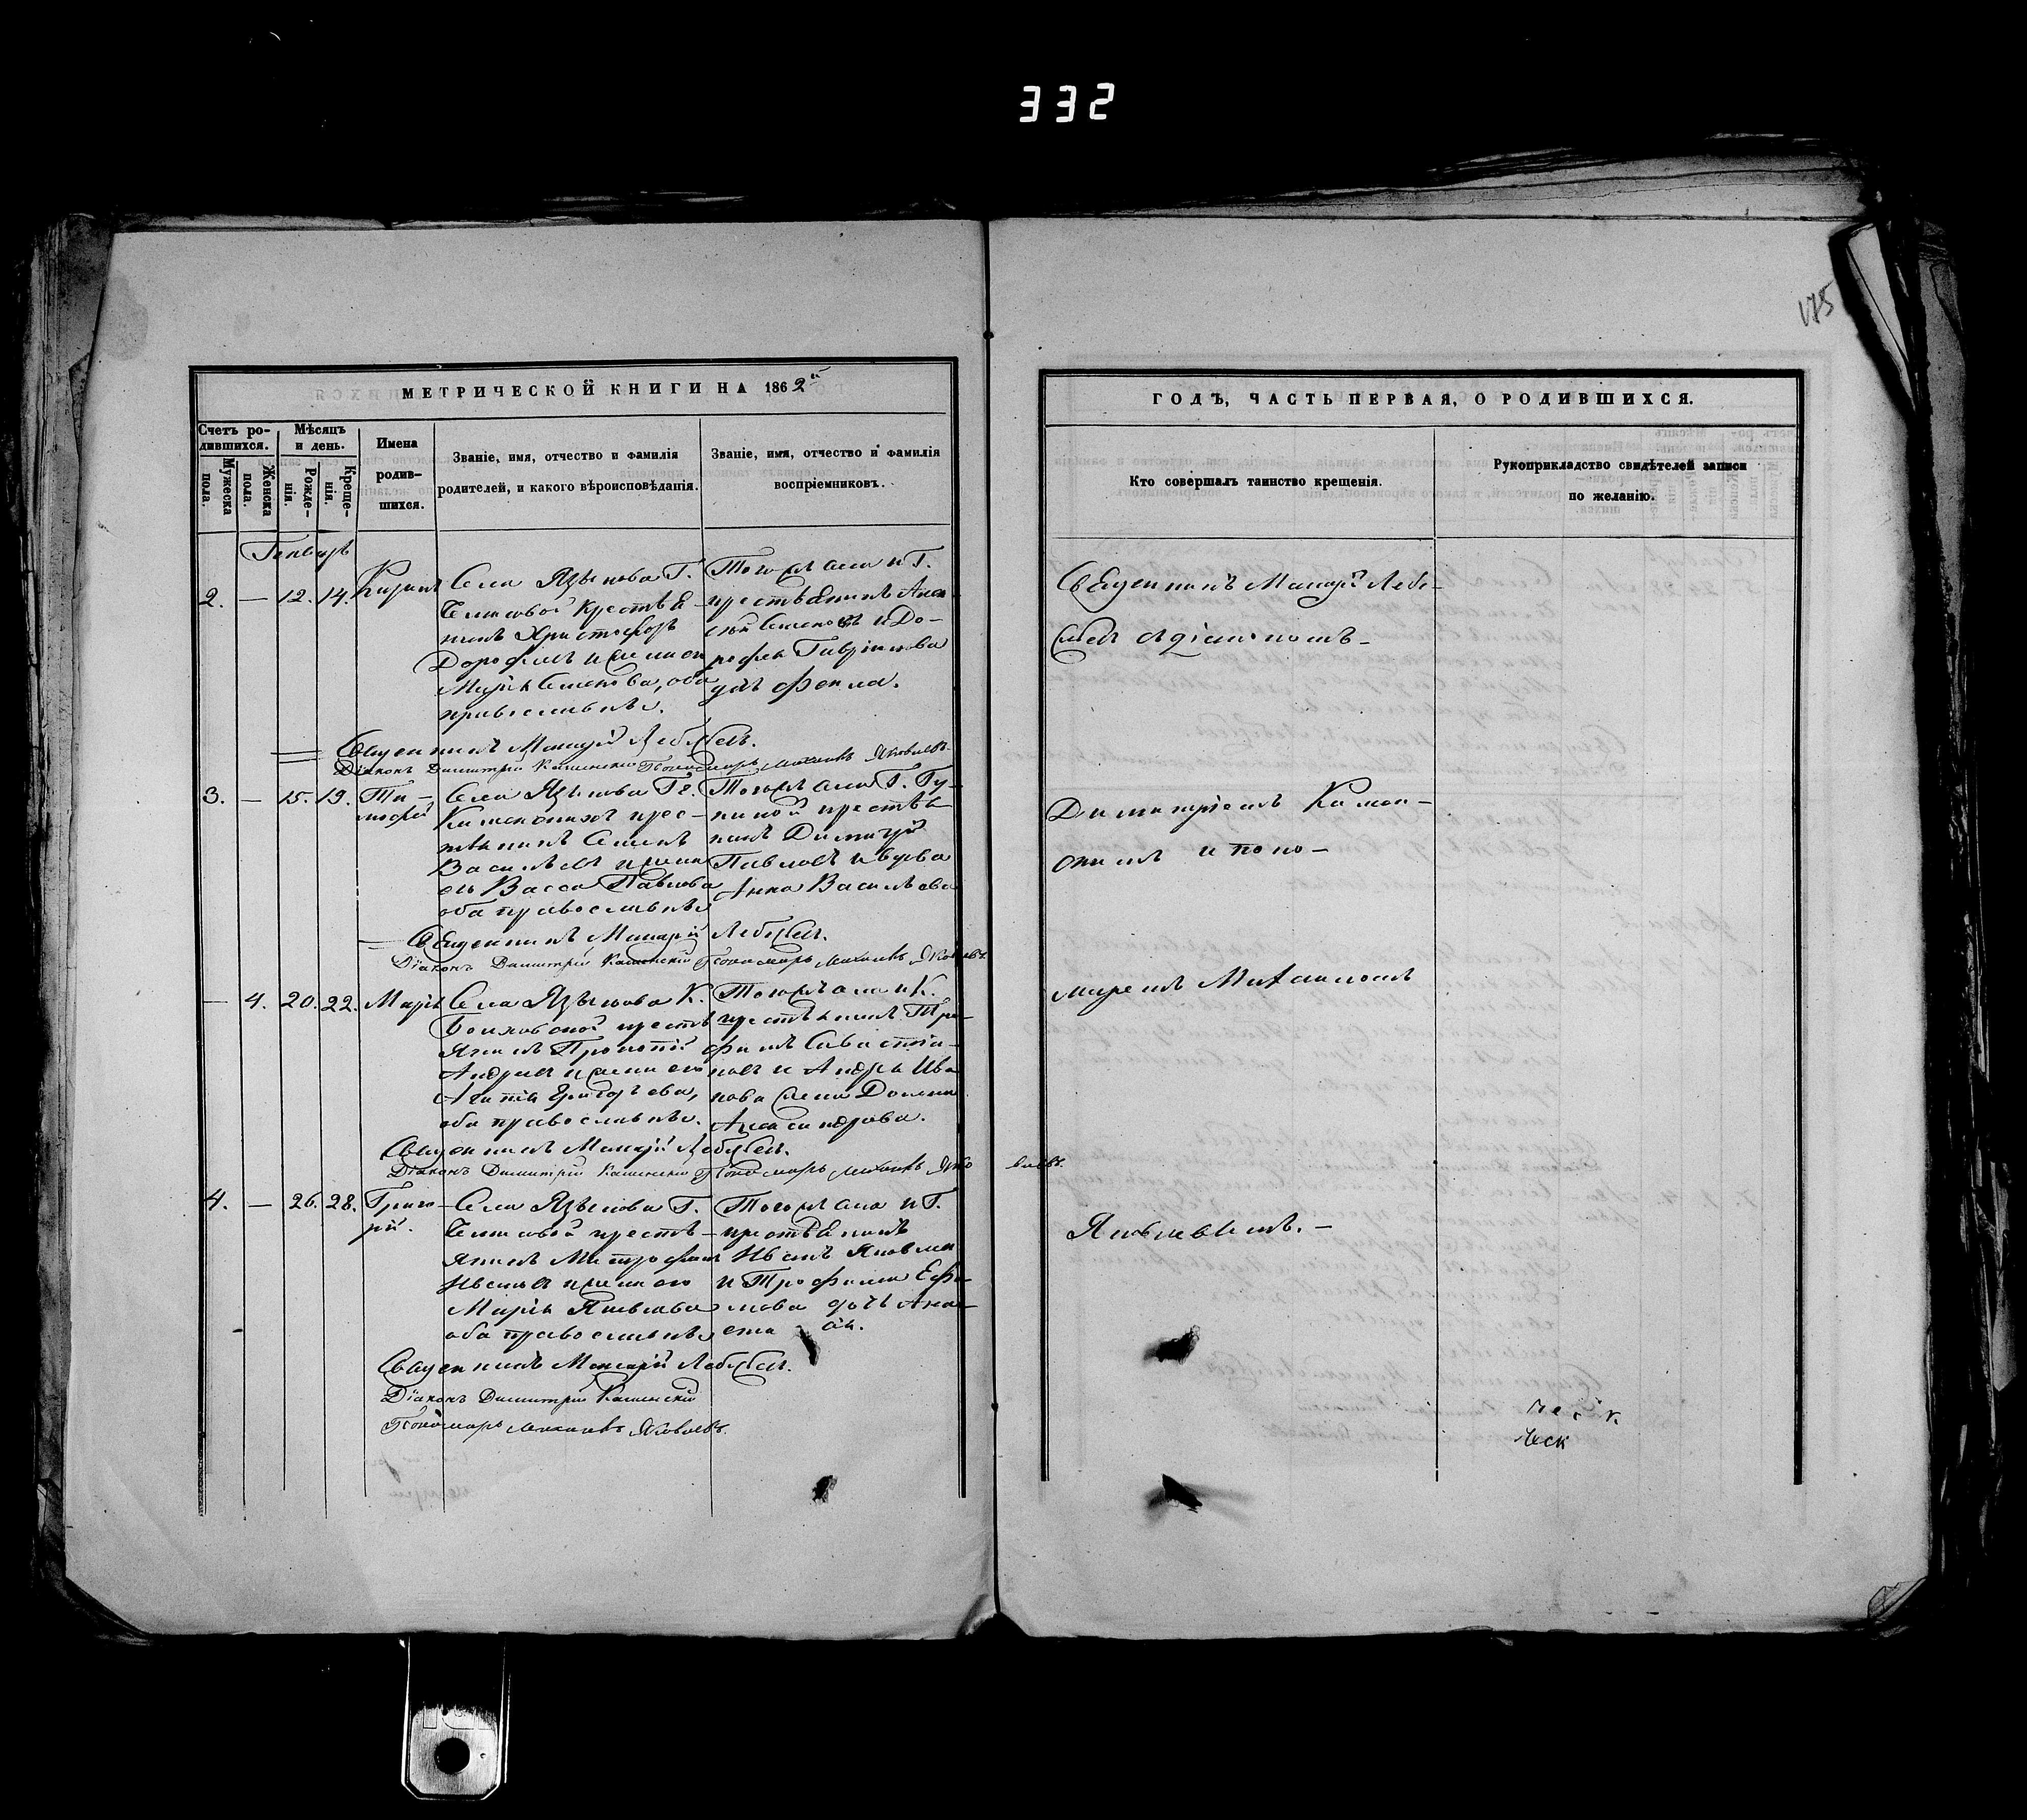 332
175
МЕТРИЧЕСКОЙ КНИГИ НА 1862й
Счетъ ро-
дившихся.
Мужеска
пола.
Женска
пола.
Мѣсяцъ
и день.
Рожде-
нія.
Креще-
нія.
Имена
родив-
шихся.
Званіе, имя, отчество и фамилія
родителей, и какого вѣроисповѣданія.
Званіе, имя, отчество и фамилія
воспріемниковъ.
Генварь
2. — 12. 14.
Села Языкова Г.
крестья-
нинъ Христофоръ
Дорофеевъ и жена его
Марія Семенова, оба
православные.
Тогожъ села и Г.
крестьянинъ Алек-
сѣй Семеновъ и До-
рофея Гаврилова
Священникъ Макарій Лебедевъ.
Діаконъ Димитрій Каменскій Пономарь Михаилъ Яковлевъ
3. — 15. 19.
Ти-
мофей
Села Языкова Гг.
крес-
тьянинъ Семенъ
Васильевъ и жена
его Васса Павлова
оба православные
Тогожъ села Г.
крестья-
нинъ Димитрій
Павловъ и вдова
Анна Васильева
Священникъ Макарій Лебедевъ.
Діаконъ Димитрій Каменскій Пономарь Михаилъ Яковлевъ.
— 4. 20. 22.
Марія
Села Языкова К.
крестья
янинъ Прокопій
Андреевъ и жена его
Агапія Григорьева,
оба православные.
Тогожъ села и К.
крестьянинъ Тро-
фимъ Савастіа-
новъ и Андрея Ива
нова жена Домна
Александрова.
Священникъ Макарій Лебедевъ.
Діаконъ Димитрій Каменскій Пономарь Михаилъ Яковлевъ.
4. — 26. 28.
Григо-
рій.
Села Языкова Г.
крестья-
янинъ Митрофанъ
Ивановъ и жена его
Марія Яковлева
оба православные
Тогожъ села и Г.
крестьянинъ
Иванъ Яковлевъ
и Трофима Ефи-
мова дочь
Священникъ Макарій Лебедевъ.
Діаконъ Димитрій Каменскій
Пономарь Михаилъ Яковлевъ.
ГОДЪ, ЧАСТЬ ПЕРВАЯ, О РОДИВШИХСЯ.
Кто совершалъ таинство крещенія.
Рукоприкладство свидѣтелей записи
по желанію.
Священникъ Макарій Лебе-
девъ съ діакономъ
Димитріемъ Камен-
скимъ и поно-
маремъ Михаиломъ
Яковлевымъ. —